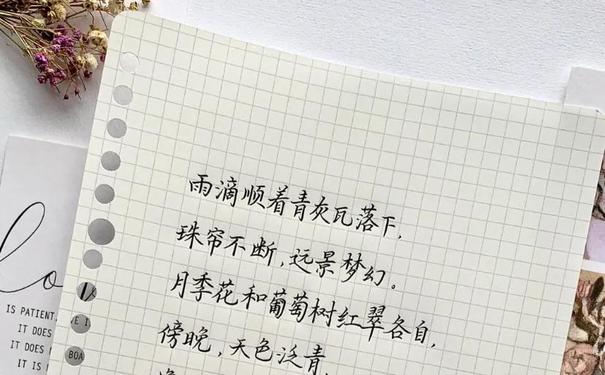 雨滴顺着青灰瓦落下,
珠帘不断,远景梦幻。
月季花和葡萄树红翠各自,
傍晚,天色泛青,
lo
IS PATIENT,
IT DOES
IT DOES
IT IS
BOA